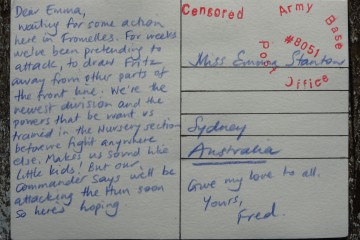 Dear Emma,
waiting for some action
here in Fromelles. For weeks
we've been pretending to
attack, to draw Fritz
away from other parts of
the front line. We're the
newest division and the
powers that be want us
trained in the Nursery section
before fight anywhere
else. Makes us sound like
little kids! But our
Commander says we'll be
attacking the Hun soon
so here's hoping
Censored
Army Base
#8051
Post Office
Miss Emma Stanton
Sydney
Australia
Give my love to all.
Yours,
Fred.